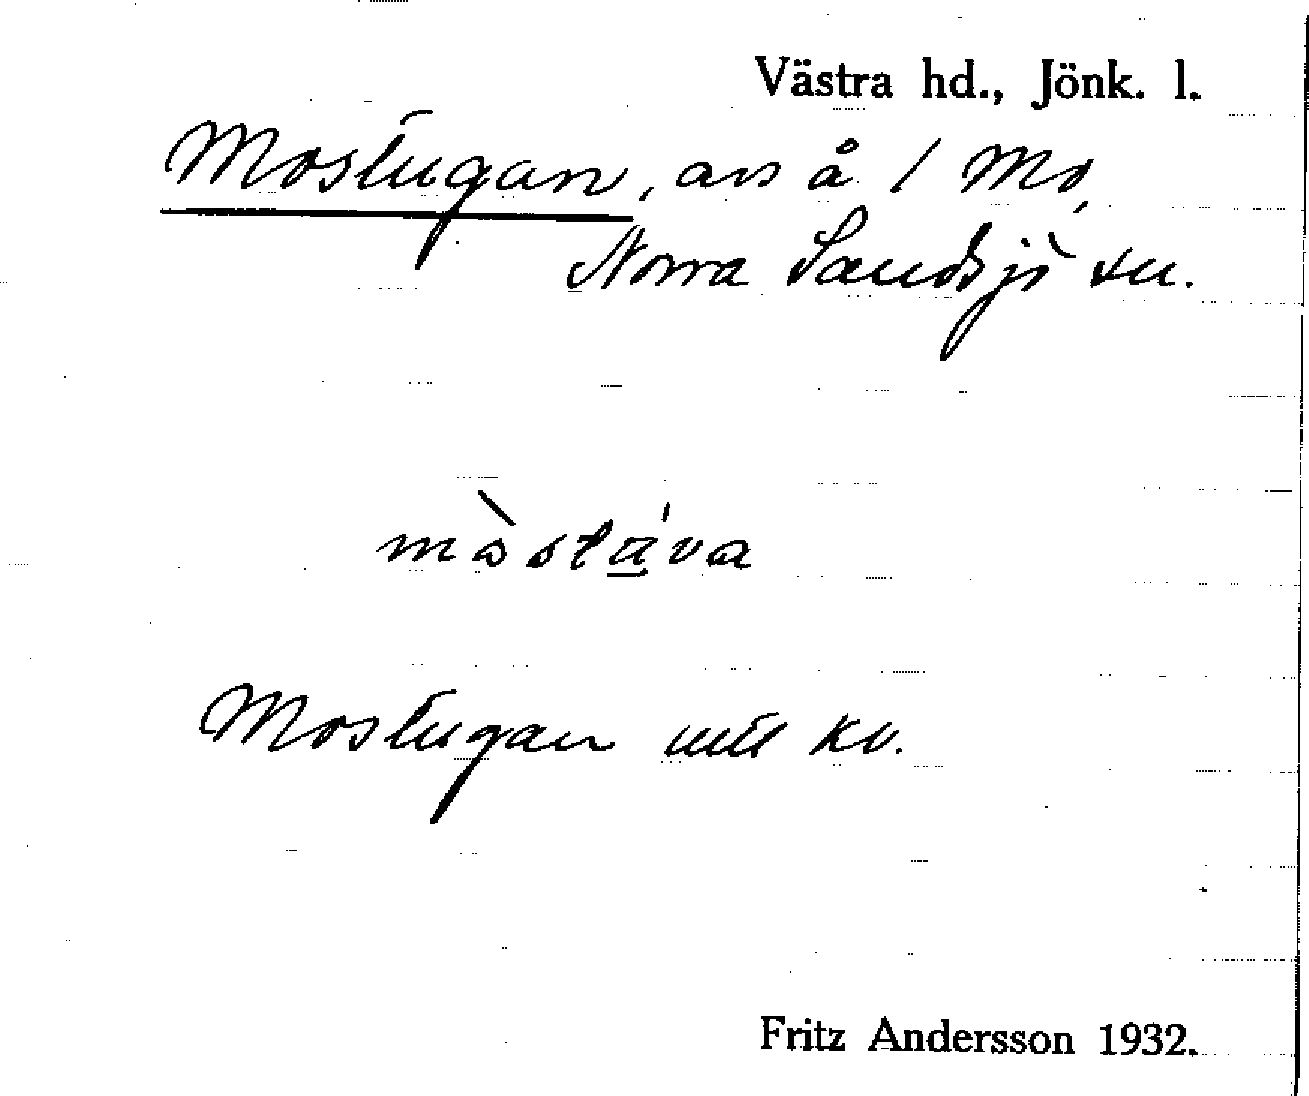 Västra hd., Jönk. l.
Mostugan, avs å 1 Mo,
Norra Sandsjö sn.
mòstáva
Mostugan mtl kv.
Fritz Andersson 1932.